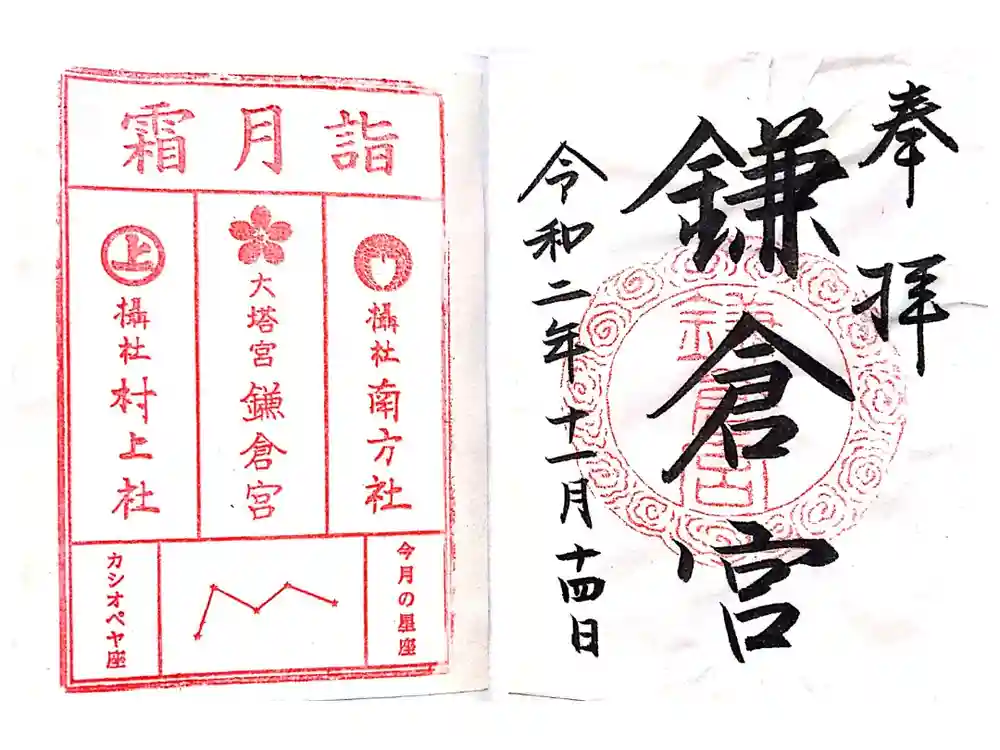 奉拝
鎌倉宮
令和二年十一月十四日
鎌倉宮
霜月詣
攝社南方社
大塔宮鎌倉宮
上
攝社村上社
今月の星座
カシオペヤ座